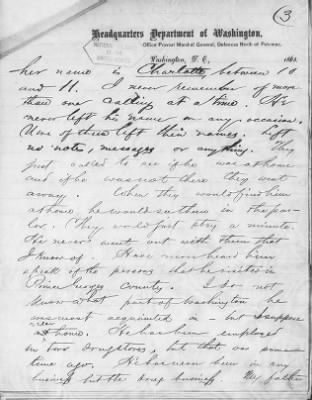 3
Headquarters Department of Washington,
Office Provost Marshal General, Defences North of Potomac.
Washington, D. C., 186
her name is Charlotte between 10
and 11. I never remember of more
than one calling at a time. He
never left his name on any occasion.
None of them left their names. Left
no notes, messages or anything. They
just called to see if he was at home
and if he was not there they went
away. When they would find him
at home, he would see them in the par-
lor. They would just stay a minute.
He never went out with them that
I know of. Have never heard him
speak of the persons that he visited in
Prince Georges County. I do not
know what part of Washington he
was most acquainted in - but suppose
at home. He has been employed
in two drugstores, but that was some
time ago. He has never been in any
business but the drug business. His father